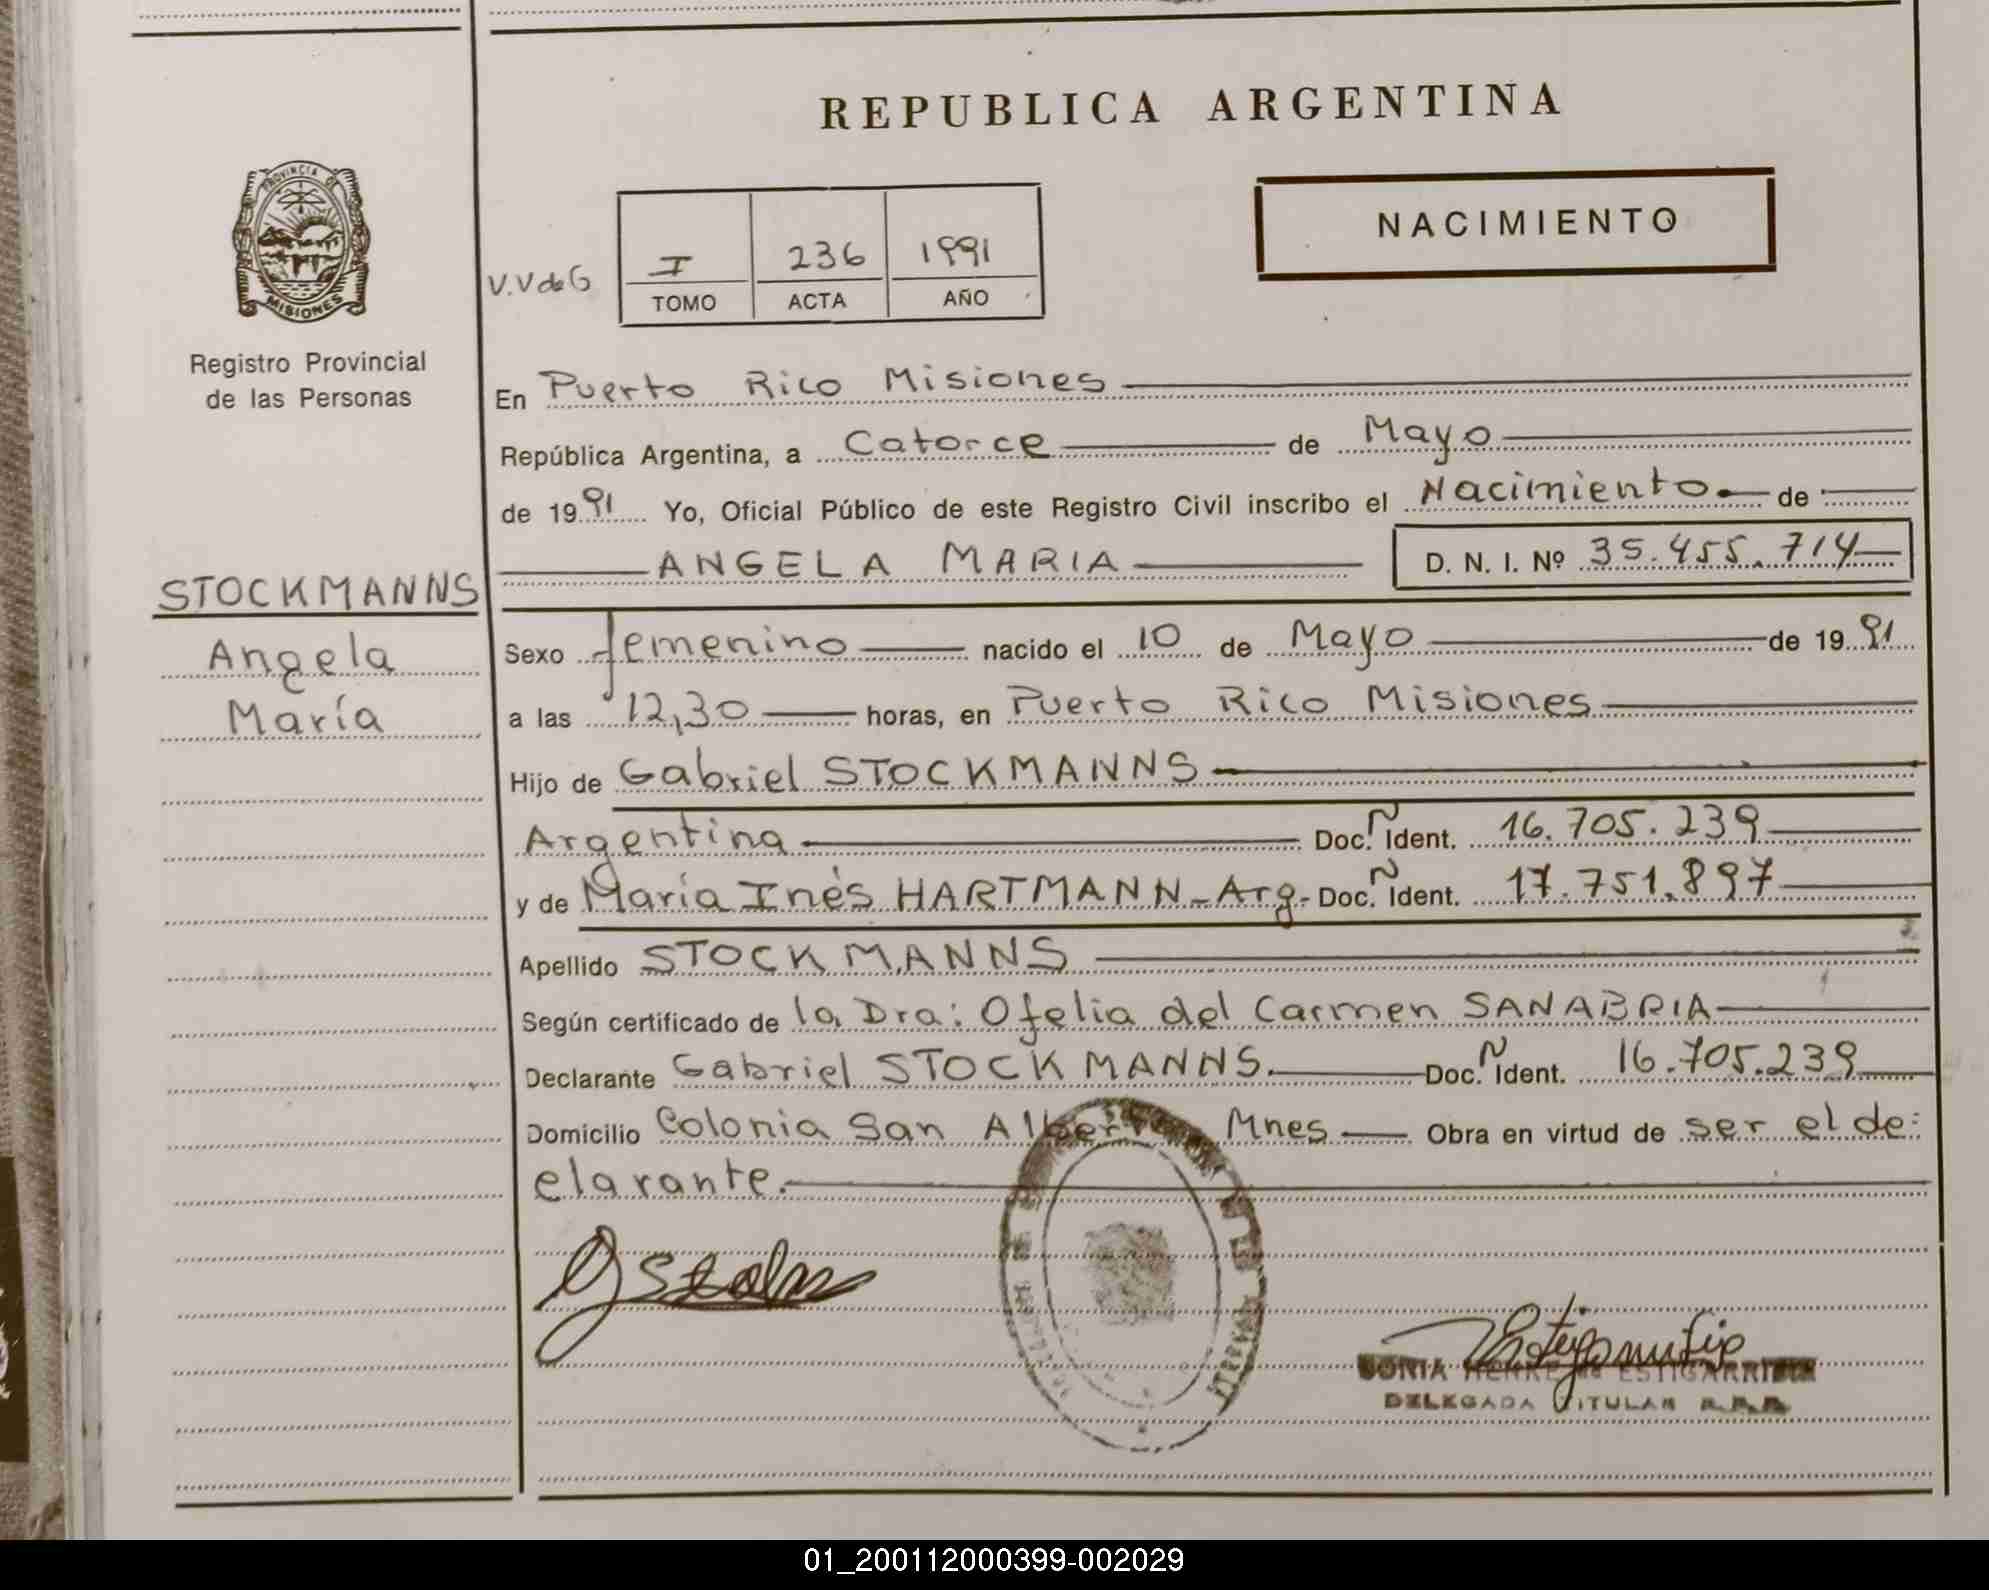 REPUBLICA ARGENTINA
PROVINCIA DE
MISIONES
Registro Provincial
de las Personas
NACIMIENTO
V.V de G
I 236 1991
TOMO ACTA AÑO
En Puerto Rico Misiones
República Argentina, a Catorce de Mayo
de 1991 Yo, Oficial Público de este Registro Civil inscribo el Nacimiento de
ANGELA MARIA D. N. I. Nº 35.455.714
STOCKMANNS
Angela
María
Sexo femenino nacido el 10 de Mayo de 1991
a las 12,30 horas, en Puerto Rico Misiones
Hijo de Gabriel STOCKMANNS
Argentina Doc. N Ident. 16.705.239
y de María Inés HARTMANN-Arg- Doc. N Ident. 17.751.897
Apellido STOCKMANNS
Según certificado de la Dra: Ofelia del Carmen SANABRIA
Declarante Gabriel STOCKMANNS. Doc. N Ident. 16.705.239
Domicilio Colonia San Alberto Mnes Obra en virtud de ser el de-
clarante.
SONIA HENKE de ESTIGARRIBIA
DELEGADA TITULAR R.P.P.
01_200112000399-002029